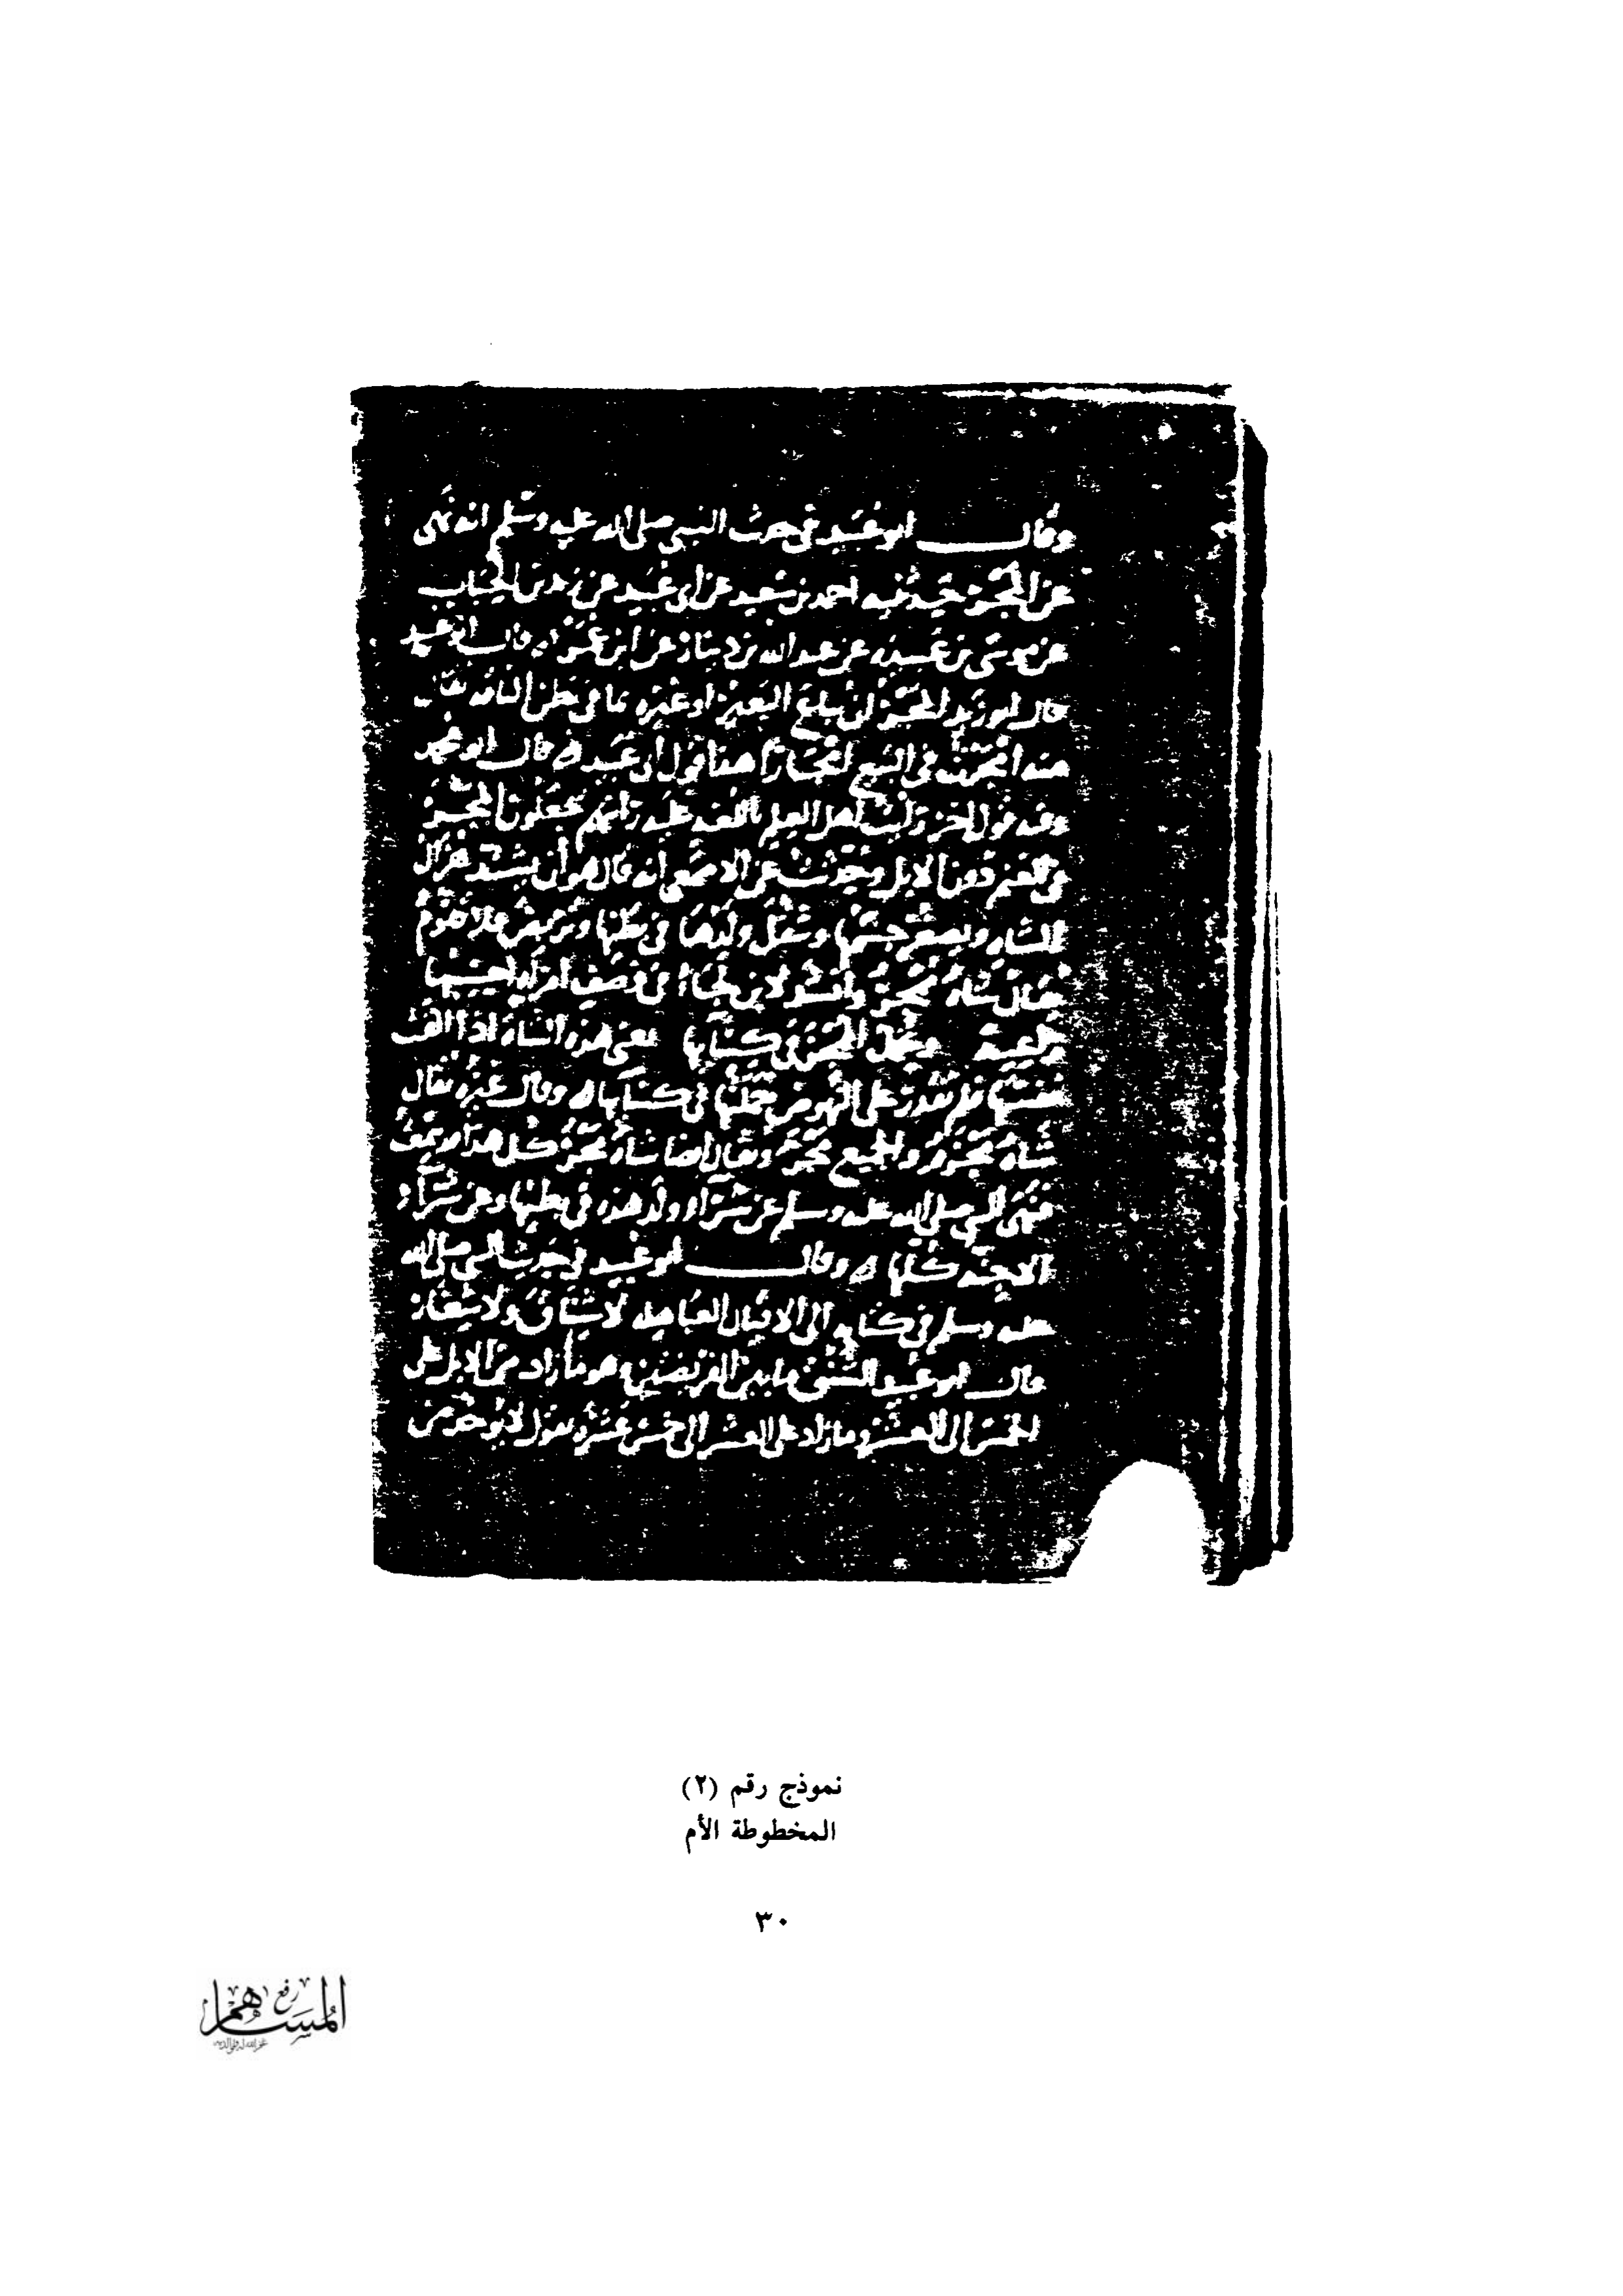 وقال أبو عبيد في حديث النبي صلى الله عليه وسلم انه نهى
عن المجر حدثنيه احمد بن سعيد عن أبي عبيد عن زيد بن الحباب
عن موسى بن عبيدة عن عبد الله بن دينار عن ابن عمر قال ابو عبيد
قال ابو زيد المجر أن يباع البعير او غيره بما في بطن الناقة يقال
منه امجرت في البيع امجارا هذا قول أبي عبيد قال ابو محمد
وفيه قول اخر رأيت أهل العلم باللغة عليه رأيتهم يجعلون المجر
في الغنم دون الابل وحدثت عن الاصمعي أنه قال هو أن يشتد هزال
الشاة ويصغر جسمها ويثقل ولدها في بطنها وتربض فلا تقوم
يقال شاة ممجر وأنشد لابن لجأ في وصف امرأة
راعية وتحمل الممجر في كسائها يعني هذه الشاة اذا ألقت
نفسها فلم تقدر على النهوض حملتها في كسائها وقال غيره يقال
شاة مجرة والجميع مجر ويقال ايضا شاة ممجر كل هذا
فنهى النبي صلى الله عليه وسلم عن شراء ولد هذه في بطنها وعن شراء
الاجنة كلها وقال أبو عبيد في حديث النبي صلى الله
عليه وسلم في كتابه الى الاقيال العباهلة لا شناق ولا شغار
قال ابو عبيد الشنق ما بين الفريضتين وهو ما زاد من الابل على
الخمس الى العشر وما زاد على العشر الى خمس عشرة يقول لا يؤخذ من
نموذج رقم (٢)
المخطوطة الأم
٣٠
رفع
المساهم
غفر الله له ولوالديه